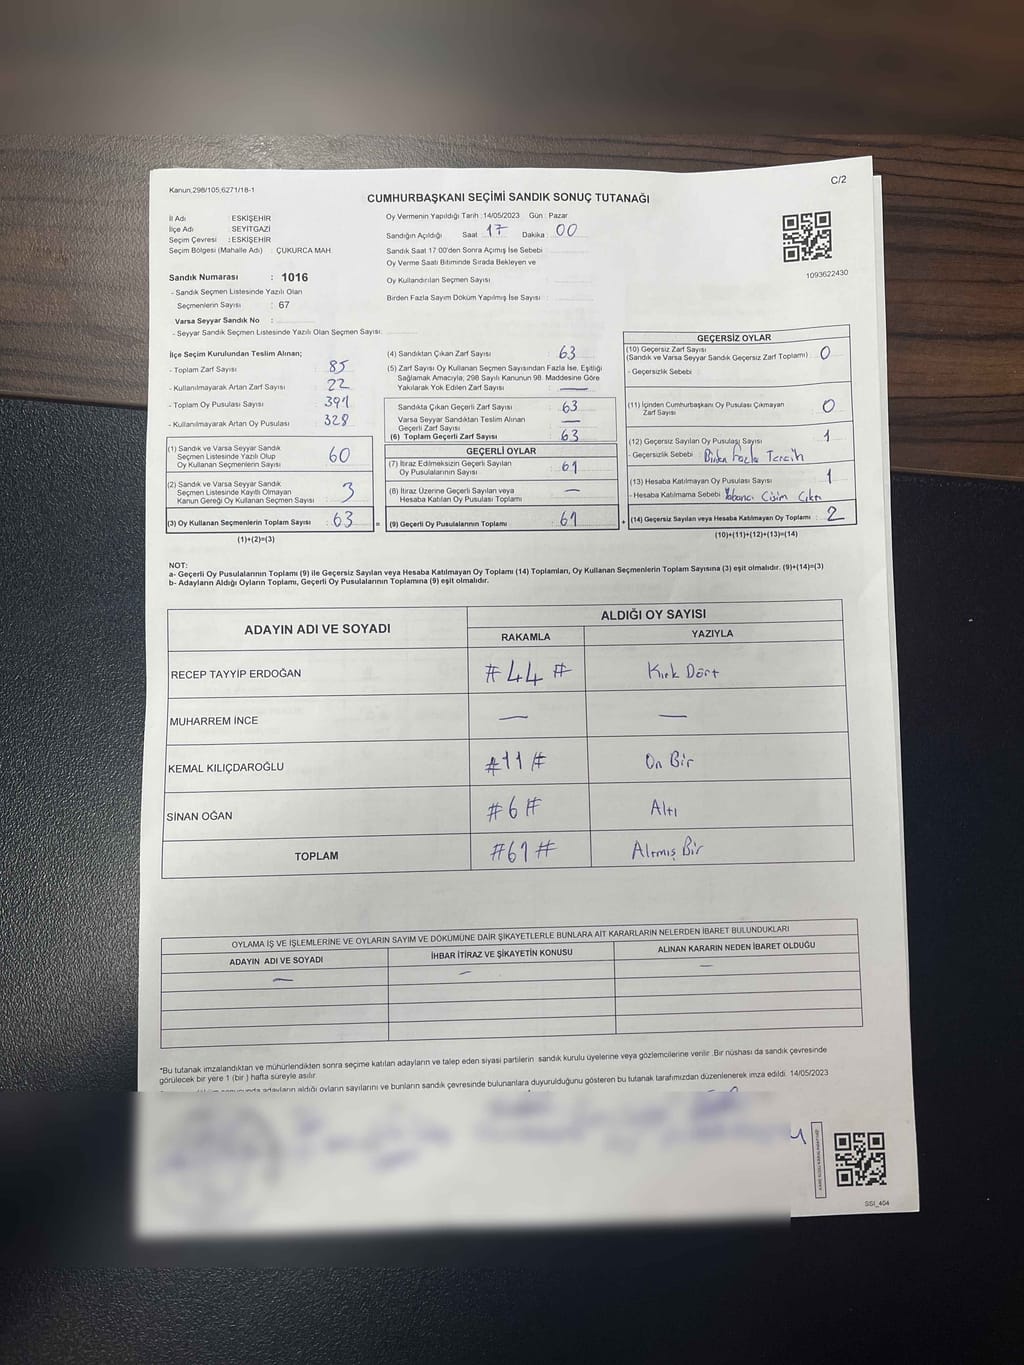 Kanun,298/105,6271/18-1
C/2
CUMHURBAŞKANI SEÇİMİ SANDIK SONUÇ TUTANAĞI
İl Adı : ESKİŞEHİR
İlçe Adı : SEYİTGAZİ
Seçim Çevresi : ESKİŞEHİR
Seçim Bölgesi (Mahalle Adı) : ÇUKURCA MAH.
Sandık Numarası : 1016
- Sandık Seçmen Listesinde Yazılı Olan
Seçmenlerin Sayısı : 67
Varsa Seyyar Sandık No :
- Seyyar Sandık Seçmen Listesinde Yazılı Olan Seçmen Sayısı:
Oy Vermenin Yapıldığı Tarih :14/05/2023 Gün : Pazar
Sandığın Açıldığı Saat : 17 Dakika : 00
Sandık Saat 17:00'den Sonra Açımış İse Sebebi :
Oy Verme Saati Bitiminde Sırada Bekleyen ve
Oy Kullandırılan Seçmen Sayısı :
Birden Fazla Sayım Döküm Yapılmış İse Sayısı :
1093622430
İlçe Seçim Kurulundan Teslim Alınan;
- Toplam Zarf Sayısı : 85
- Kullanılmayarak Artan Zarf Sayısı : 22
- Toplam Oy Pusulası Sayısı : 391
- Kullanılmayarak Artan Oy Pusulası : 328
(1) Sandık ve Varsa Seyyar Sandık
Seçmen Listesinde Yazılı Olup
Oy Kullanan Seçmenlerin Sayısı : 60
(2) Sandık ve Varsa Seyyar Sandık
Seçmen Listesinde Kayıtlı Olmayan
Kanun Gereği Oy Kullanan Seçmen Sayısı : 3
(3) Oy Kullanan Seçmenlerin Toplam Sayısı : 63 =
(1)+(2)=(3)
(4) Sandıktan Çıkan Zarf Sayısı : 63
(5) Zarf Sayısı Oy Kullanan Seçmen Sayısından Fazla İse, Eşitliği
Sağlamak Amacıyla; 298 Sayılı Kanunun 98. Maddesine Göre
Yakılarak Yok Edilen Zarf Sayısı : —
Sandıkta Çıkan Geçerli Zarf Sayısı : 63
Varsa Seyyar Sandıktan Teslim Alınan
Geçerli Zarf Sayısı : —
(6) Toplam Geçerli Zarf Sayısı : 63
GEÇERLİ OYLAR
(7) İtiraz Edilmeksizin Geçerli Sayılan
Oy Pusulalarının Sayısı : 61
(8) İtiraz Üzerine Geçerli Sayılan veya
Hesaba Katılan Oy Pusulası Toplamı : —
(9) Geçerli Oy Pusulalarının Toplamı : 61 +
GEÇERSİZ OYLAR
(10) Geçersiz Zarf Sayısı
(Sandık ve Varsa Seyyar Sandık Geçersiz Zarf Toplamı) : 0
- Geçersizlik Sebebi :
(11) İçinden Cumhurbaşkanı Oy Pusulası Çıkmayan
Zarf Sayısı : 0
(12) Geçersiz Sayılan Oy Pusulası Sayısı : 1
- Geçersizlik Sebebi : Birden Fazla Tercih
(13) Hesaba Katılmayan Oy Pusulası Sayısı : 1
- Hesaba Katılmama Sebebi : Yabancı Cisim Çıktı
(14) Geçersiz Sayılan veya Hesaba Katılmayan Oy Toplamı : 2
(10)+(11)+(12)+(13)=(14)
NOT:
a- Geçerli Oy Pusulalarının Toplamı (9) ile Geçersiz Sayılan veya Hesaba Katılmayan Oy Toplamı (14) Toplamları, Oy Kullanan Seçmenlerin Toplam Sayısına (3) eşit olmalıdır. (9)+(14)=(3)
b- Adayların Aldığı Oyların Toplamı, Geçerli Oy Pusulalarının Toplamına (9) eşit olmalıdır.
ADAYIN ADI VE SOYADI
ALDIĞI OY SAYISI
RAKAMLA YAZIYLA
RECEP TAYYİP ERDOĞAN #44# Kırk Dört
MUHARREM İNCE — —
KEMAL KILIÇDAROĞLU #11# On Bir
SİNAN OĞAN #6# Altı
TOPLAM #61# Altmış Bir
OYLAMA İŞ VE İŞLEMLERİNE VE OYLARIN SAYIM VE DÖKÜMÜNE DAİR ŞİKAYETLERLE BUNLARA AİT KARARLARIN NELERDEN İBARET BULUNDUKLARI
ADAYIN ADI VE SOYADI İHBAR İTİRAZ VE ŞİKAYETİN KONUSU ALINAN KARARIN NEDEN İBARET OLDUĞU
— — —
*Bu tutanak imzalandıktan ve mühürlendikten sonra seçime katılan adayların ve talep eden siyasi partilerin sandık kurulu üyelerine veya gözlemcilerine verilir .Bir nüshası da sandık çevresinde
görülecek bir yere 1 (bir ) hafta süreyle asılır.
adayların aldığı oyların sayılarını ve bunların sandık çevresinde bulunanlara duyurulduğunu gösteren bu tutanak tarafımızdan düzenlenerek imza edildi. 14/05/2023
SSI_404